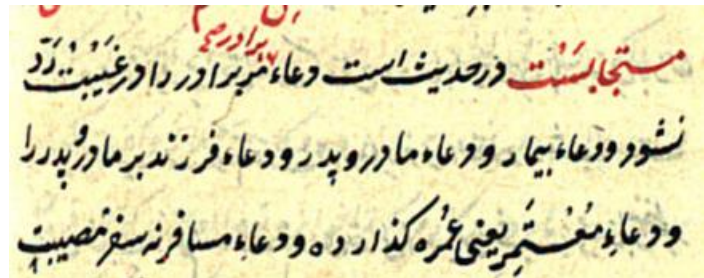 مستجابست در حدیث است دعاء مر برادر را در غیبت رد
نشود ودعاء بیمار ودعاء مادر وپدر ودعاء فرزند بر مادر وپدر را
ودعاء مُعْتَمِر یعنی عُمره کذارده ودعاء مسافر نه سفر مصیبت